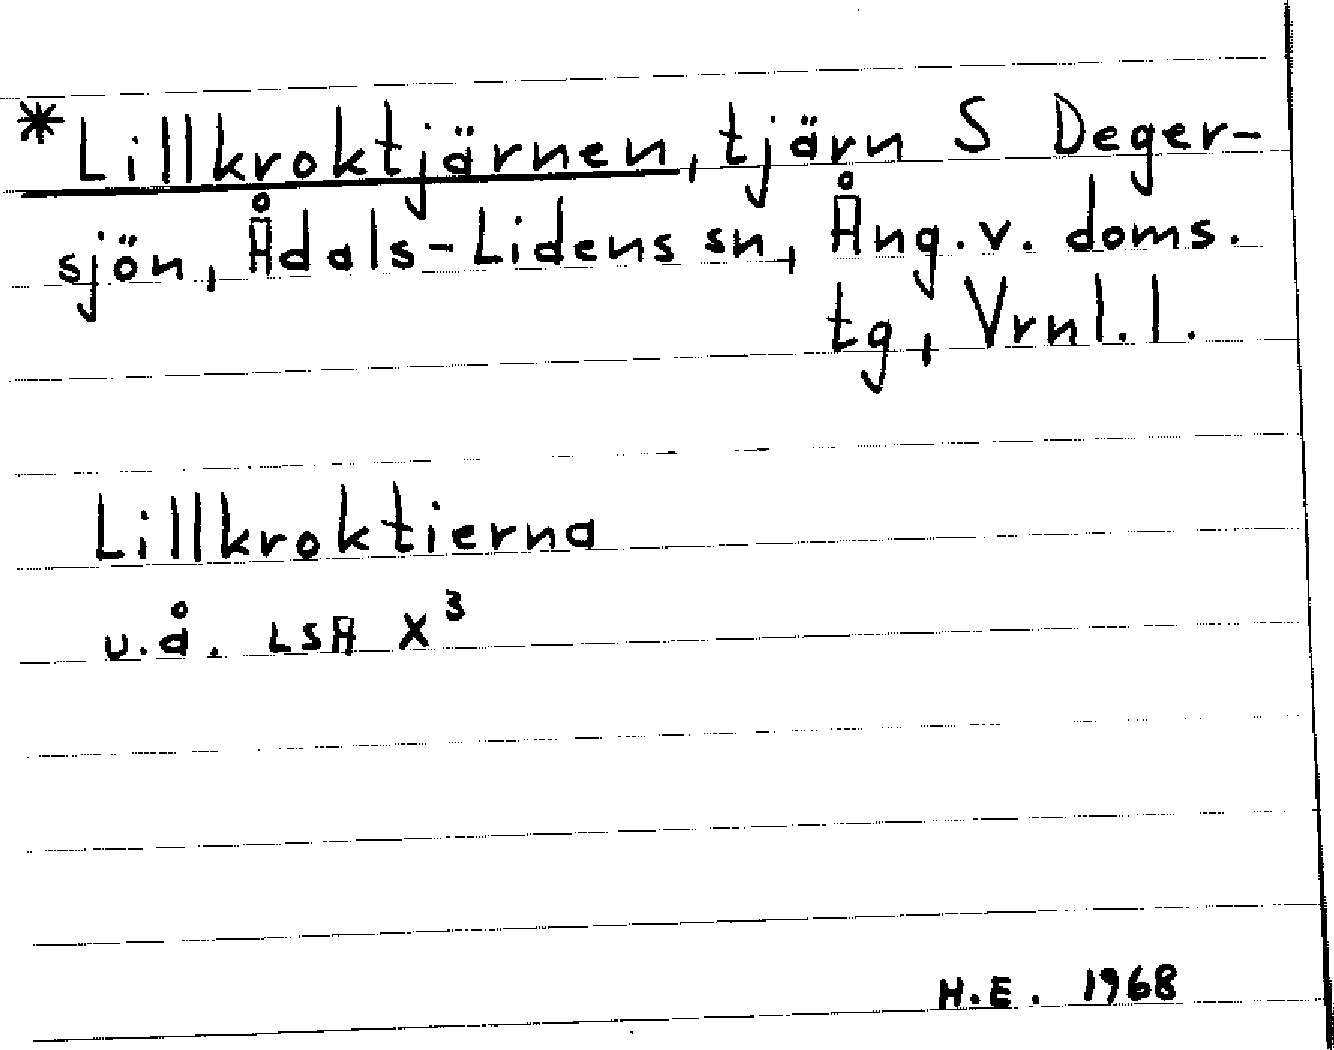 *Lillkroktjärnen, tjärn S Deger-
sjön, Ådals-Lidens sn, Ång.v. doms.
tg, Vrnl.l.
Lillkroktierna
u.å. LSA X³
H.E. 1968